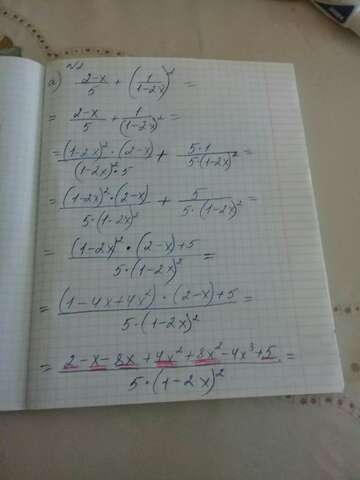 №2
а) (2-x)/5 + (1/(1-2x))² =
= (2-x)/5 + 1/(1-2x)² =
= ((1-2x)²·(2-x))/((1-2x)²·5) + (5·1)/(5·(1-2x)²) =
= ((1-2x)²·(2-x))/(5·(1-2x)²) + 5/(5·(1-2x)²) =
= ((1-2x)²·(2-x)+5)/(5·(1-2x)²) =
= ((1-4x+4x²)·(2-x)+5)/(5·(1-2x)²) =
= (2-x-8x+4x²+8x²-4x³+5)/(5·(1-2x)²) =